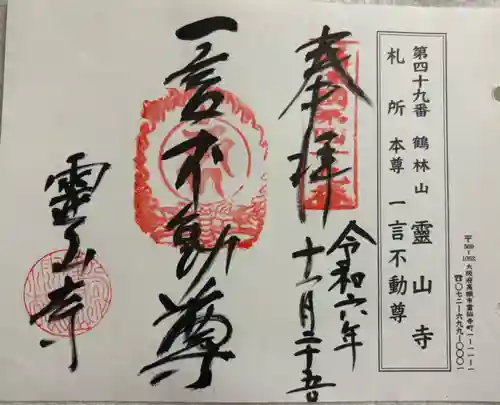 第四十九番 鶴林山 霊山寺
札所 本尊 一言不動尊
〒569-1051 大阪府高槻市霊仙寺町一-一一-一
☎〇七二-六九九-〇〇〇一
奉拝
令和六年
十一月二十五
一言不動尊
靈山寺